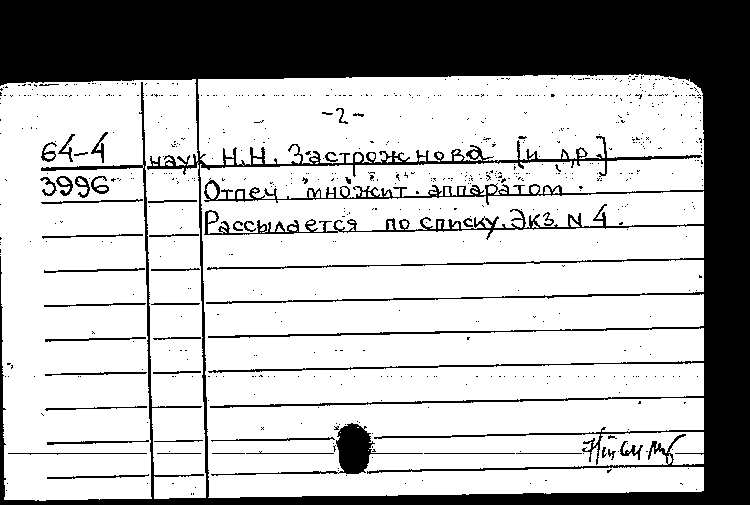 -2-
64-4 наук Н.Н. Застрожнова [и др.]
3996 Отпеч. множит. аппаратом.
Рассылается по списку. Экз. N 4.